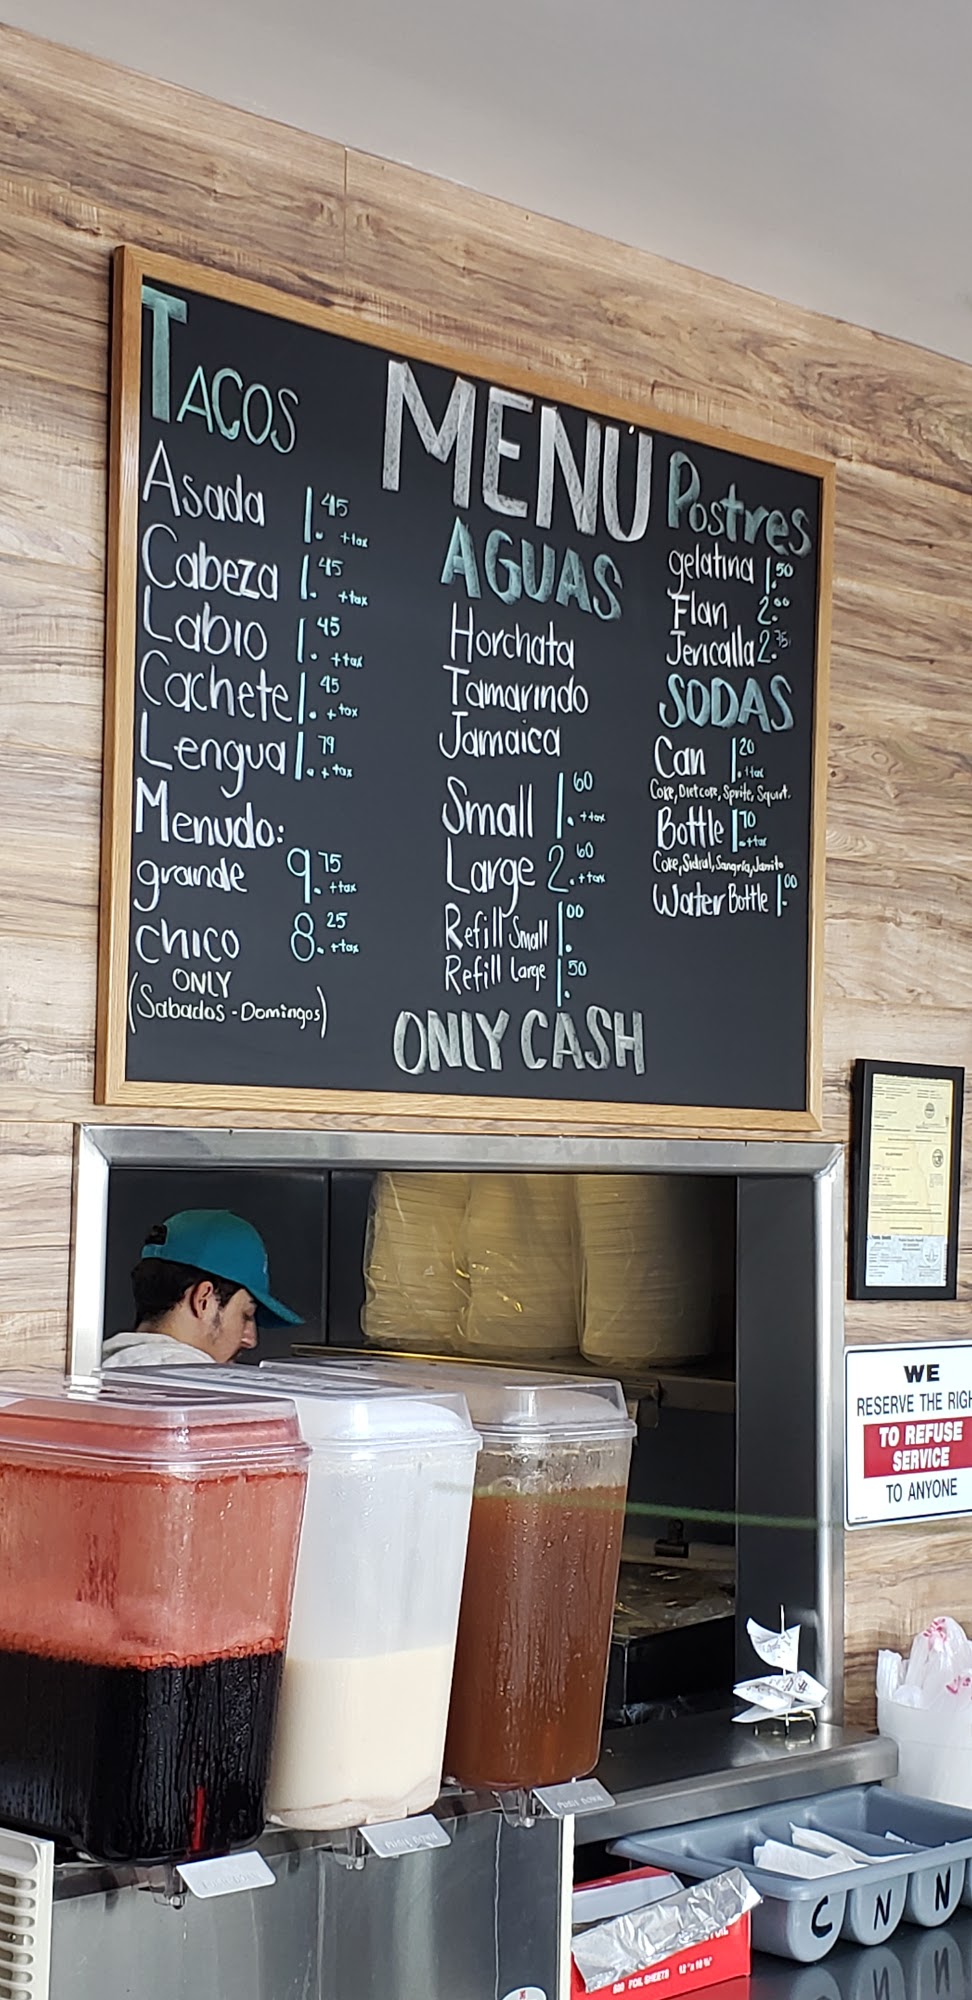 MENÚ
TACOS
Asada 1.45 +tax
Cabeza 1.45 +tax
Labio 1.45 +tax
Cachete 1.45 +tax
Lengua 1.79 +tax
Menudo:
grande 9.75 +tax
chico 8.25 +tax
ONLY
(Sabados - Domingos)
AGUAS
Horchata
Tamarindo
Jamaica
Small 1.60 +tax
Large 2.60 +tax
Refill Small 1.00
Refill Large 1.50
Postres
gelatina 1.50
Flan 2.00
Jericalla 2.75
SODAS
Can 1.20 +tax
Coke, Diet coke, Sprite, Squirt.
Bottle 1.70 +tax
Coke, Sidral, Sangria, Jarrito
Water Bottle 1.00
ONLY CASH
WE
RESERVE THE RIGH
TO REFUSE
SERVICE
TO ANYONE
C N N
FOIL SHEETS